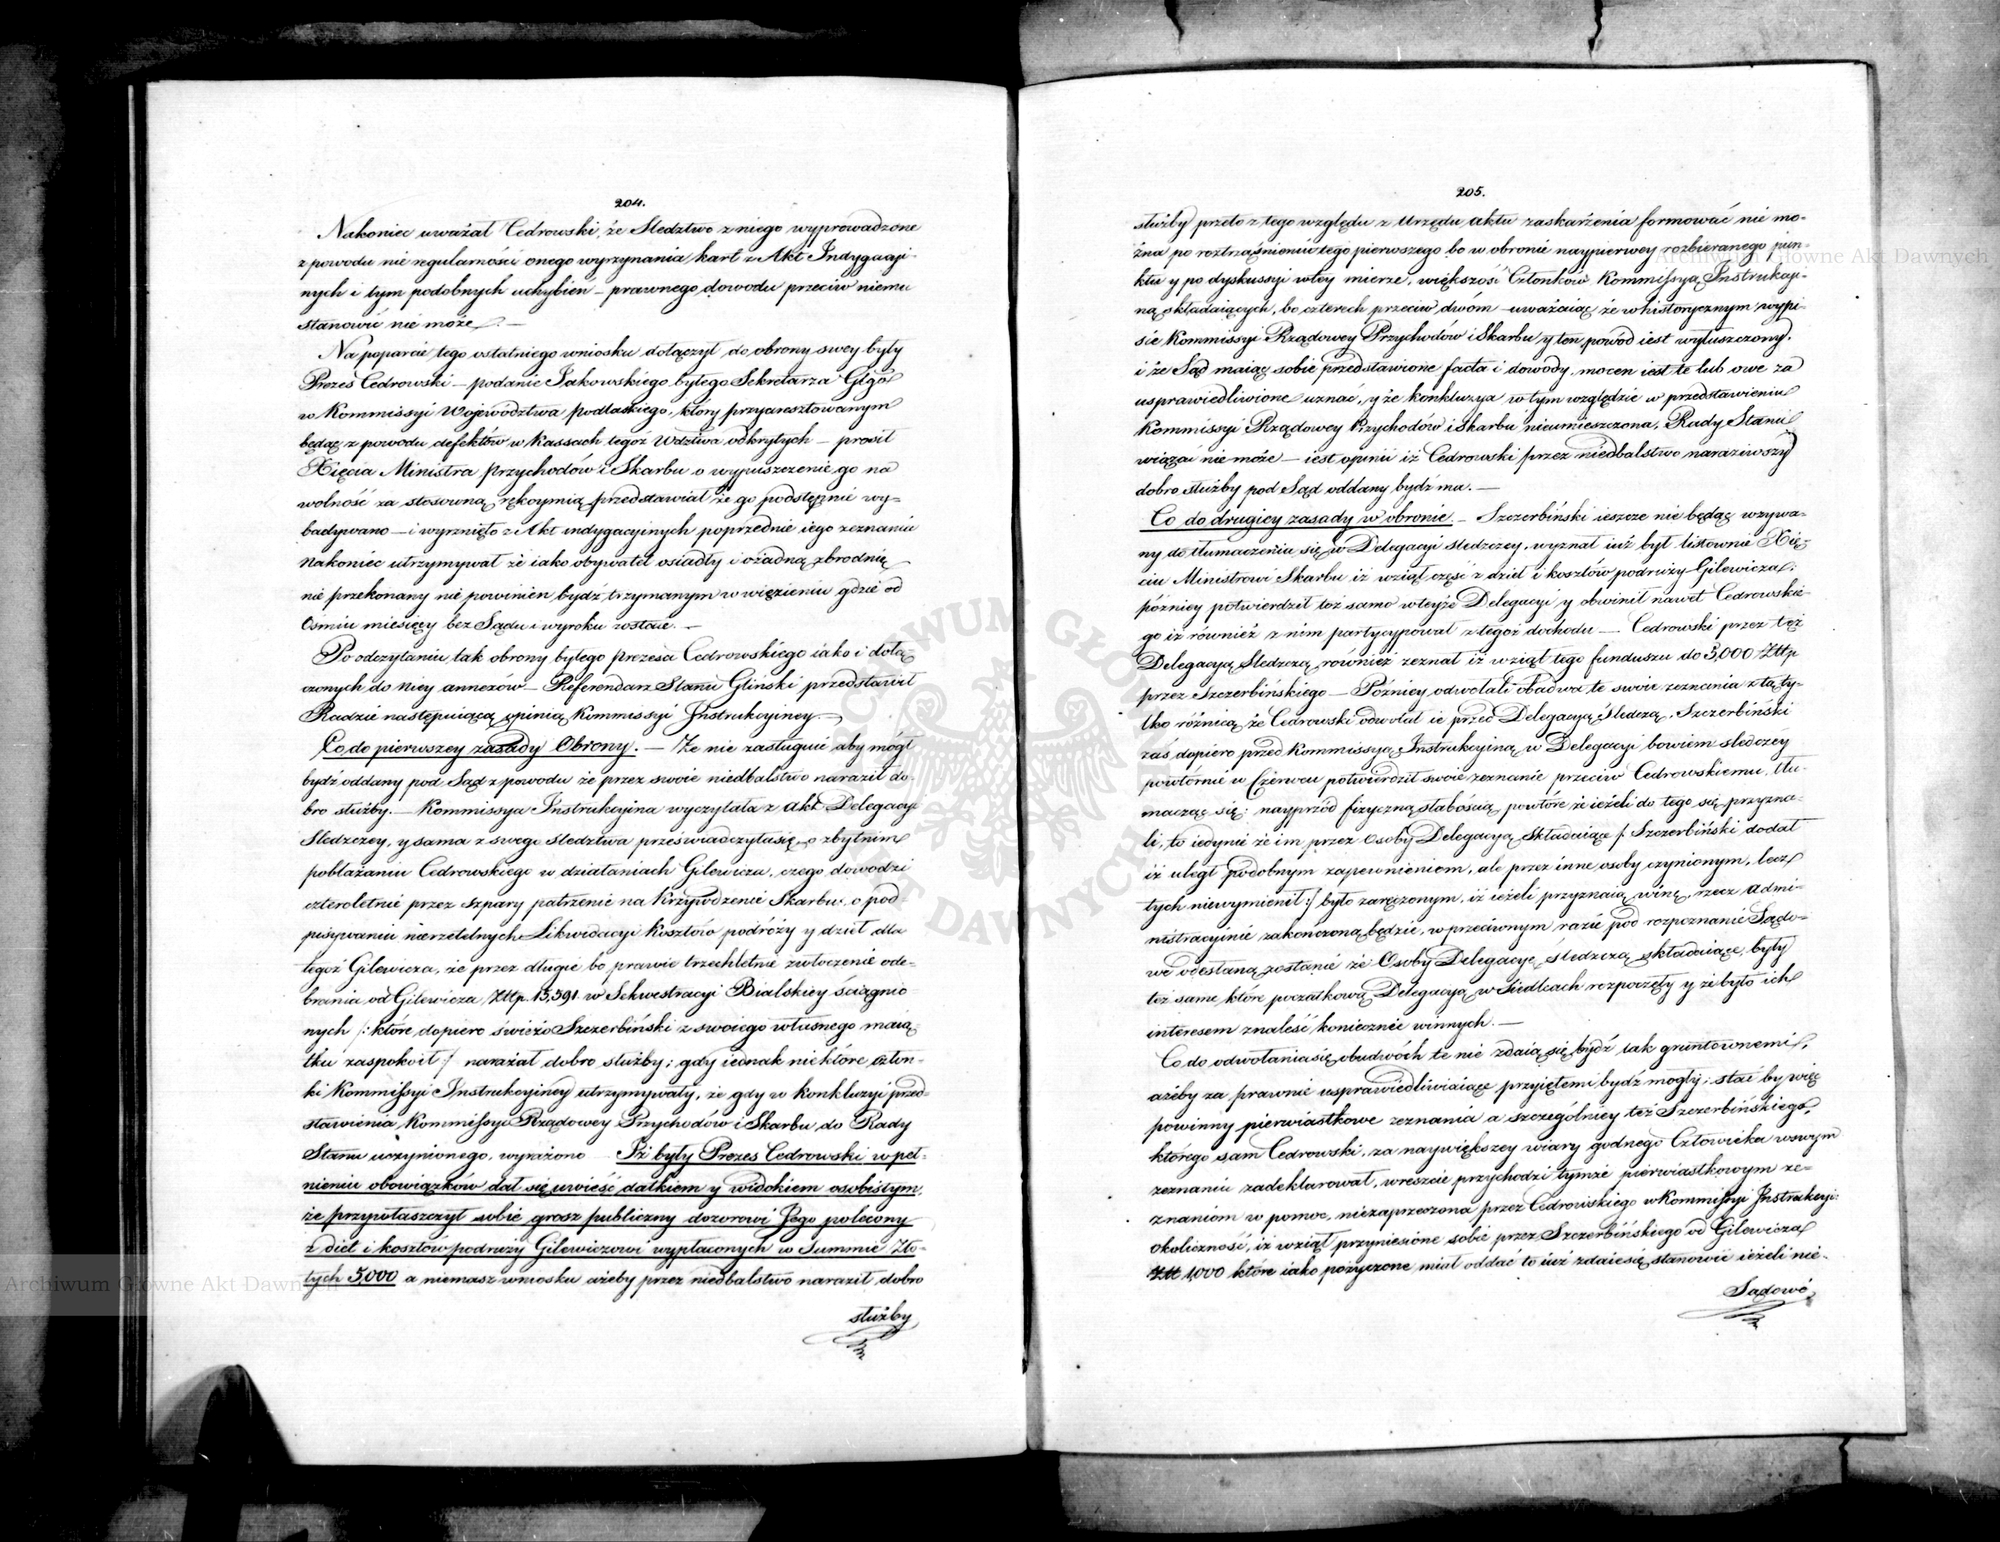 204.
Nakoniec uważał Cedrowski, że Sledztwo z niego wyprowadzone
z powodu nie regularności onego wyrzynania kart z Akt Indygacyi-
nych i tym podobnych uchybien – prawnego dowodu przeciw niemu
stanowić nie może. –
Na poparcie tego ostatniego wniosku dołączył do obrony swey były
Prezes Cedrowski – podanie Jakowskiego byłego Sekretarza Glgo
w Kommissyi Województwa podlaskiego, który przyaresztowanym
będąc z powodu defektów w Kassach tegoż Wdztwa odkrytych – prosił
Xięcia Ministra Przychodów i Skarbu o wypuszczenie go na
wolność za stosowną rękoymią przedstawiał że go podstępnie wy-
badywano – i wyrznięto z Akt indygacyinych poprzednie iego zeznanie
Nakoniec utrzymywał że iako obywatel osiadły i o żadną zbrodnię
nie przekonany nie powinien bydź trzymanym w więzieniu gdzie od
Ośmiu miesięcy bez Sądu i wyroku zostaie. –
Po odczytaniu, tak obrony byłego prezesa Cedrowskiego iako i dołą-
czonych do niey annexów – Referendarz Stanu Gliński przedstawił
Radzie następuiącą opinią Kommissyi Instrukcyiney –
Co do pierwszey zasady Obrony. – Że nie zasługuie aby mógł
bydź oddany pod Sąd z powodu że przez swoie niedbalstwo naraził do-
bro służby. – Kommissya Instrukcyina wyczytała z akt Delegacyi
Sledczey, y sama z swego sledztwa przeświadczyła się, o zbytnim
pobłażaniu Cedrowskiego w działaniach Gilewicza, czego dowodzi
czteroletnie przez szpary patrzenie na Krzywdzenie Skarbu, o pod-
pisywaniu nierzetelnych Likwidacyi kosztów podróży y dziet dla
tegoż Gilewicza, że przez długie bo prawie trzechletnie zwłoczenie ode-
brania od Gilewicza Złtp. 15,591 w Sekwestracyi Bialskiey ściągnio-
nych /: które dopiero świeżo Szczerbiński z swoiego własnego maią-
tku zaspokoił :/ narażał dobro służby; gdy iednak niektóre Człon-
ki Kommissyi Instrukcyiney utrzymywały, że gdy w konkluzyi przed-
stawienia Kommissyi Rządowey Przychodów i Skarbu do Rady
Stanu uczynionego, wyrażono Iż były Prezes Cedrowski w peł-
nieniu obowiązków dał się uwieść datkiem y widokiem osobistym,
że przywłaszczył sobie grosz publiczny dozorowi Jego polecony
z diet i kosztów podróży Gilewiczowi wypłaconych w Summie Zło-
tych 5,000 a niemasz wniosku ażeby przez niedbalstwo naraził dobro
służby
205.
służby przeto z tego względu z Urzędu aktu zaskarżenia formować nie mo-
żna po roztrząśnieniu tego pierwszego bo w obronie naypierwey rozbieranego pun-
ktu y po dyskussyi w tey mierze, większość Członków Kommissyą Instrukcyi-
ną składaiących, bo czterech przeciw dwóm uważaiąc że w historycznym wypi-
sie Kommissyi Rządowey Przychodów i Skarbu y ten powód iest wyłuszczony,
i że Sąd maiąc sobie przedstawione facta i dowody, mocen iest te lub owe za
usprawiedliwione uznać, y że konkluzya w tym względzie w przedstawieniu
Kommissyi Rządowey Przychodów i Skarbu nieumieszczona, Rady Stanu
wiązać nie może – iest opinii iż Cedrowski przez niedbalstwo naraziwszy
dobro służby pod Sąd oddany bydź ma. –
Co do drugiey zasady w obronie. – Szczerbiński ieszcze nie będąc wzywa-
ny do tłumaczenia się w Delegacyi sledczey, wyznał iuż był listownie Xię-
ciu Ministrowi Skarbu iż wziął część z dziet i kosztów podróży Gilewicza;
późniey potwierdził toż samo w teyże Delegacyi y obwinił nawet Cedrowskie-
go iż również z nim partycypował z tegoż dochodu – Cedrowski przez też
Delegacyą Sledczą, również zeznał iż wziął tego funduszu do 3,000 Złtp
przez Szczerbińskiego – Późniey odwołali obadwa te swoie zeznania z tą ty-
lko różnicą że Cedrowski odwołał ie przed Delegacyą Sledczą, Szczerbiński
zaś dopiero przed Kommissyą Instrukcyiną w Delegacyi bowiem sledczey
powtórnie w Czerwcu potwierdził swoie zeznanie przeciw Cedrowskiemu, tłu-
macząc się; nayprzód fizyczną słabością, powtóre że ieżeli do tego się przyzna-
li, to iedynie że im przez Osoby Delegacyą składaiące /: Szczerbiński dodał
iż uległ podobnym zapewnieniom, ale przez inne osoby czynionym, lecz
tych niewymienił :/ było zaręczonym, iż ieżeli przyznaią winę, rzecz admi-
nistracyinie zakończoną będzie, w przeciwnym razie pod rozpoznanie Sądo-
we odesłaną zostanie że Osoby Delegacyę śledczą składaiące, były
też same które początkową Delegacyą w Siedlcach rozpoczęły y że było ich
interesem znaleść koniecznie winnych. –
Co do odwołania się obudwóch te nie zdaią się bydź tak gruntownemi,
ażeby za prawnie usprawiedliwiaiące przyiętemi bydź mogły; stać by więc
powinny pierwiastkowe zeznania a szczególniey też Szczerbińskiego,
którego sam Cedrowski, za naywiększey wiary godnego Człowieka w swym
zeznaniu zadeklarował, wreszcie przychodzi tymże pierwiastkowym ze-
znaniom w pomoc, niezaprzeczona przez Cedrowskiego w Kommissyi Instrukcyi:
okoliczność, iż wziął przyniesione sobie przez Szczerbińskiego od Gilewicza
Złt 1,000 które iako pożyczone miał oddać to iuż zdaie się stanowić ieżeli nie-
Sądowe
Archiwum Główne Akt Dawnych
Archiwum Główne Akt Dawnych
ARCHIWUM GŁÓWNE AKT DAWNYCH